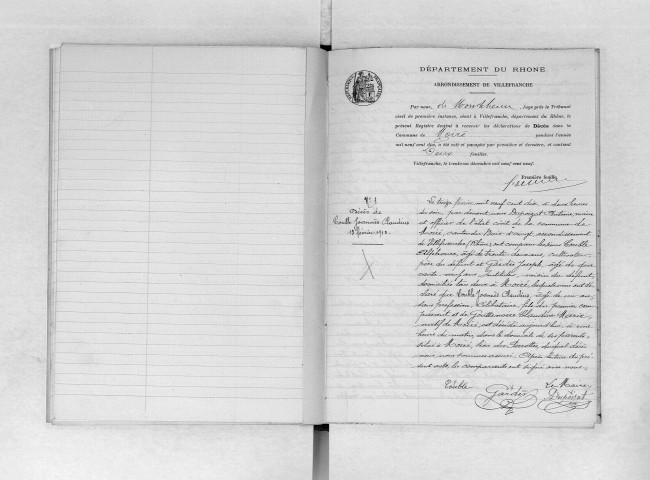 DÉPARTEMENT DU RHONE
ARRONDISSEMENT DE VILLEFRANCHE
Par nous, de Juge près le Tribunal
civil de première instance, séant à Villefranche, département du Rhône, le
présent Registre destiné à recevoir les déclarations de Décès dans la
Commune de Moiré pendant l'année
mil neuf cent dix, a été coté et paraphé par première et dernière, et contient
feuilles.
Villefranche, le trente-un décembre mil neuf cent neuf.
Première feuille
N° 1
Décès de
Joannès Claudius
février 1910.
février mil neuf cent dix à deux heures
du soir, par devant nous Dupoizat Antoine, maire
et officier de l'état civil de la commune de
Moiré, canton du Bois d'Oingt, arrondissement
de Villefranche (Rhône), ont comparu les sieurs
Alphonse, âgé de trente ans, cultivateur
père du défunt et Gardès Joseph, âgé de
neuf ans, voisin du défunt,
domiciliés tous deux à Moiré, lesquels nous ont dé-
claré que Joannès Claudius, âgé de un an,
sans profession, célibataire, fils du premier com-
parant et de Claudine Marie,
natif de Moiré, est décédé aujourd'hui à une
heure du matin, dans le domicile de ses parents
situé à Moiré, lieu des duquel décès
nous nous sommes assuré. Après lecture du pré-
sent acte les comparants ont signé avec nous.
Le Maire
Gardès
Dupoizat